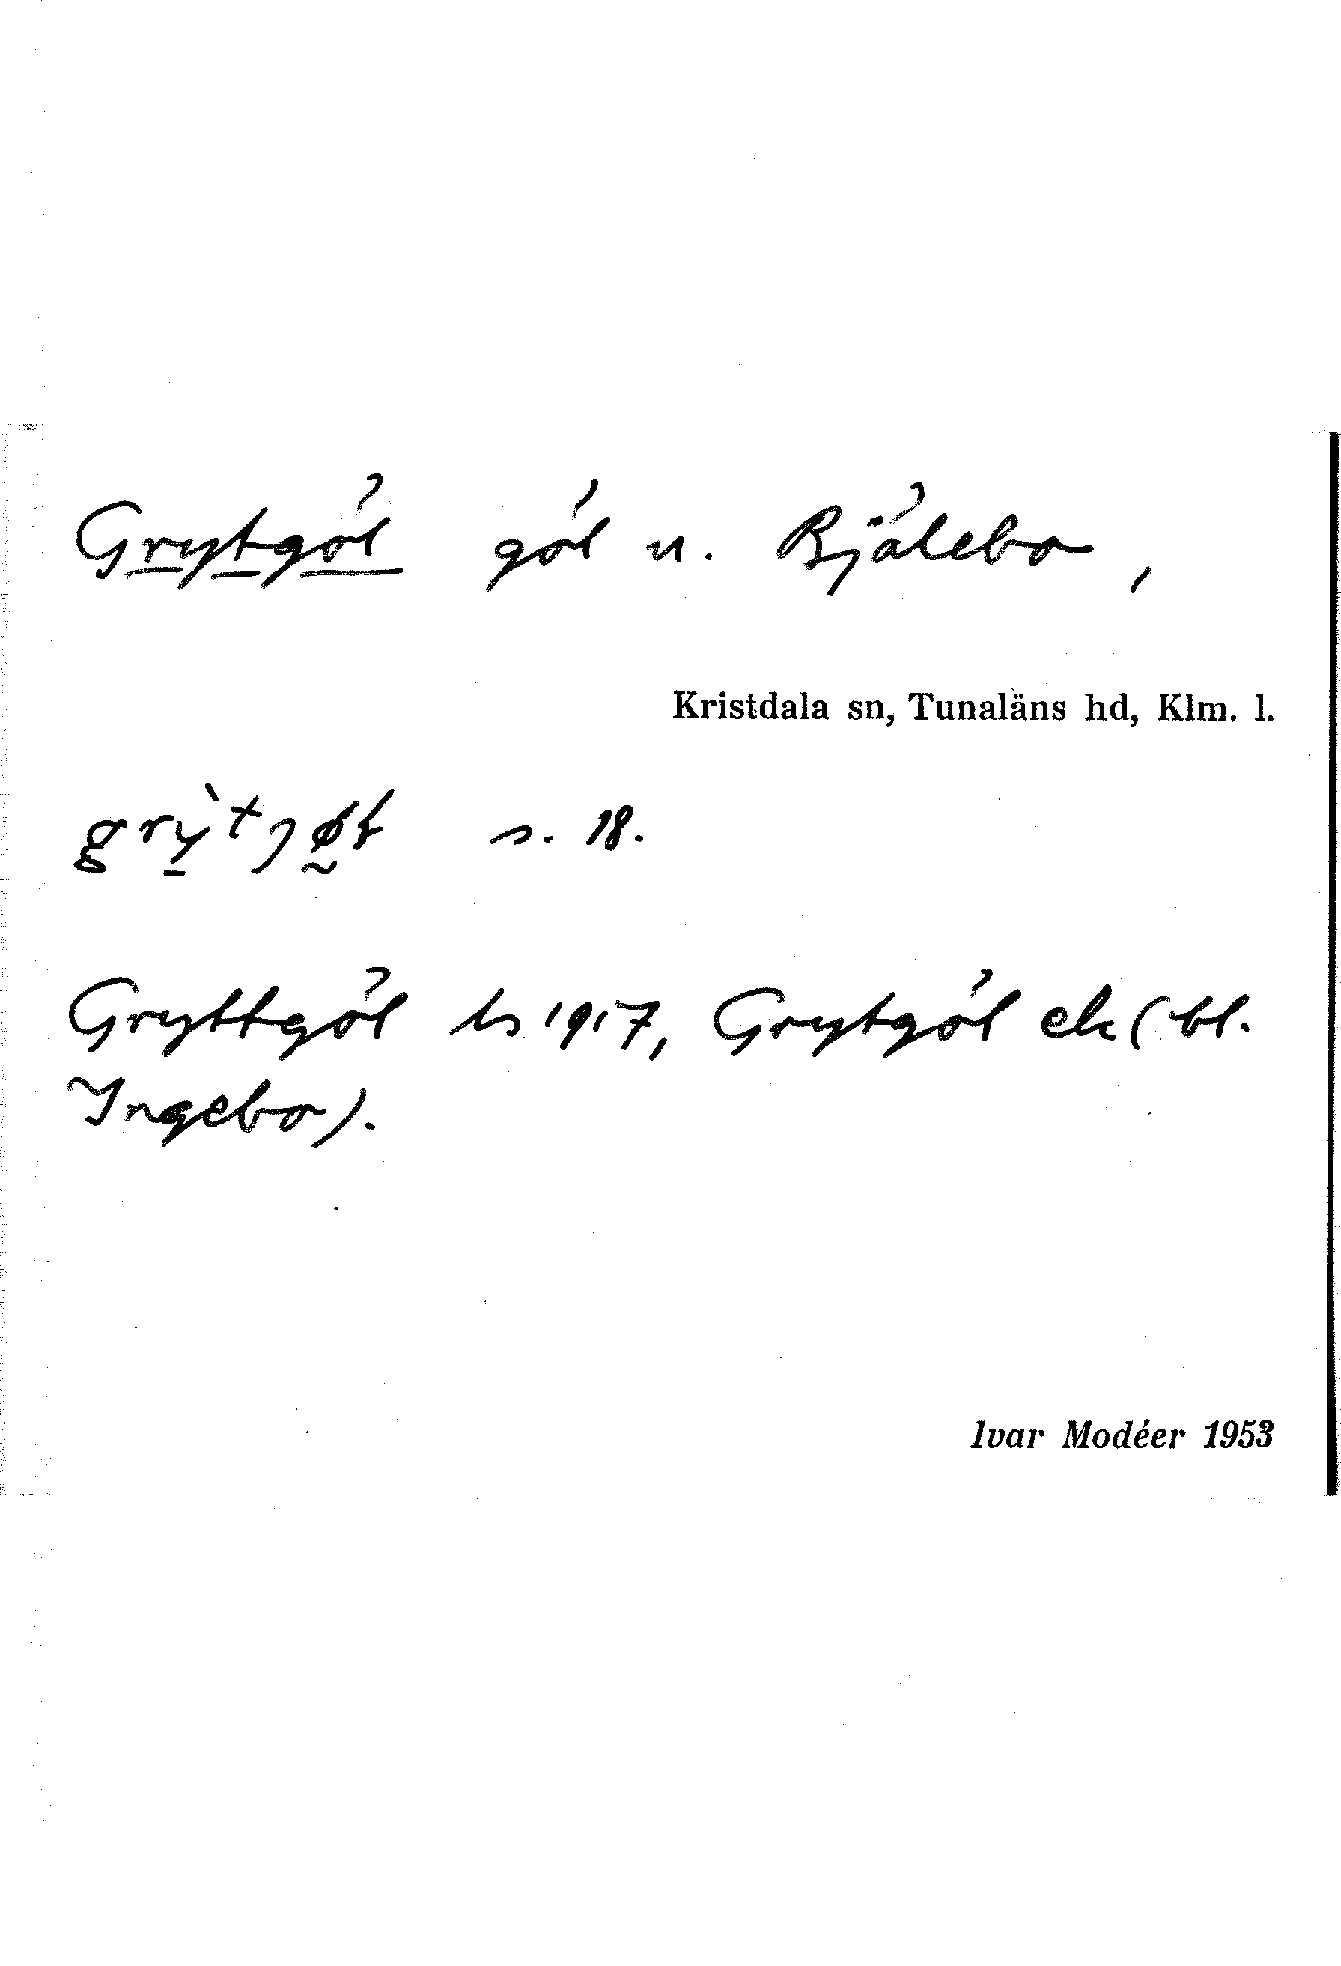 Grytgöl göl u. Bjälebo,
Kristdala sn, Tunaläns hd, Klm. l.
s. 18.
Gryttgöl ls 1917, Grytgöl ek (bl.
Ingebo).
Ivar Modéer 1953